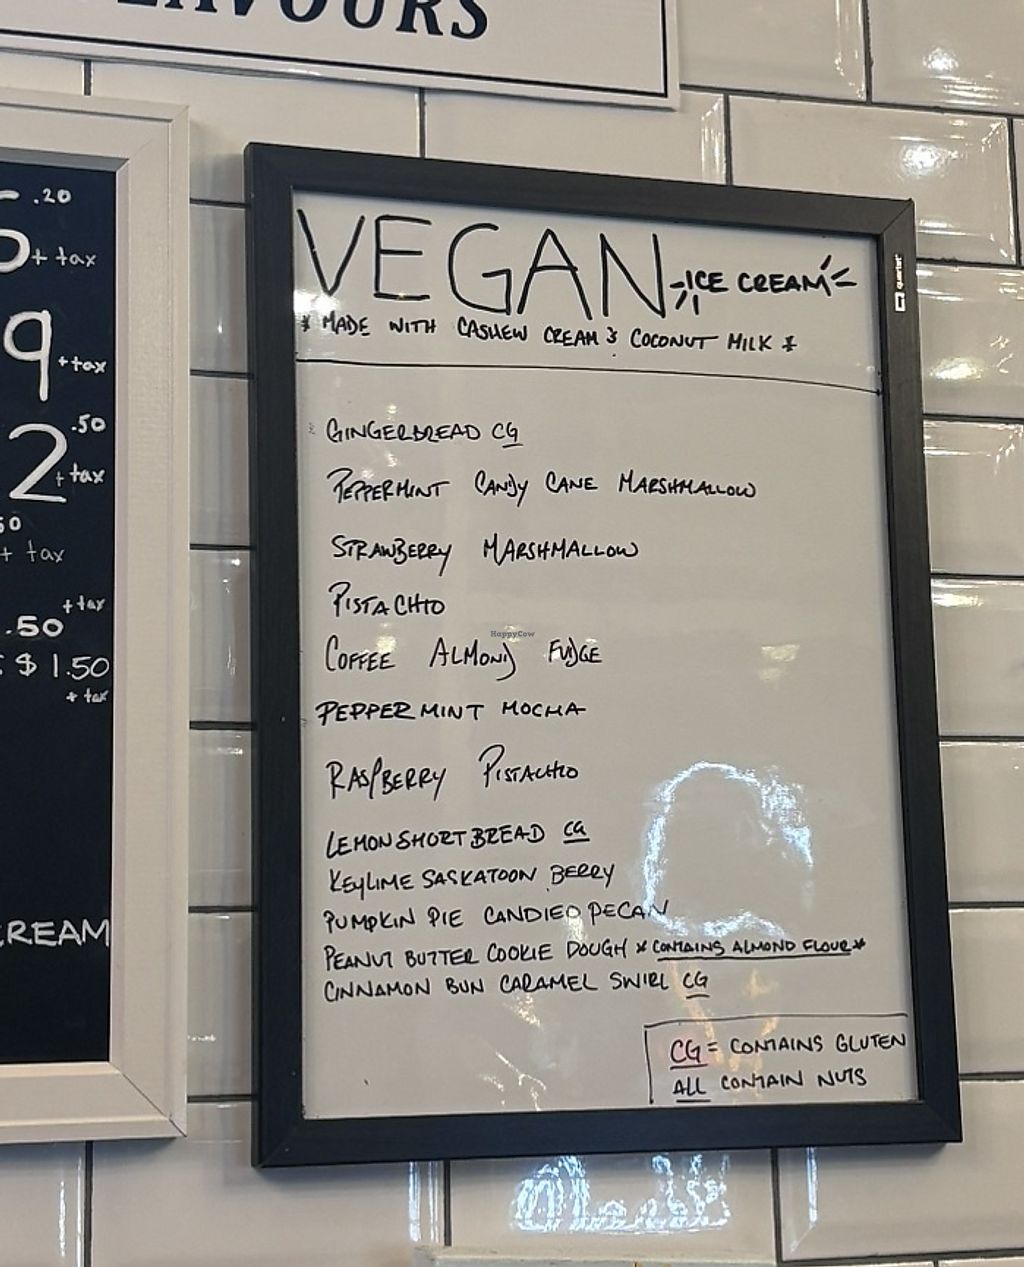 .20
+ tax
9 + tax
2 .50 + tax
+ tax
+ tax
.50
$ 1.50
+ tax
VEGAN ICE CREAM
* MADE WITH CASHEW CREAM & COCONUT MILK *
GINGERBREAD CG
PEPPERMINT CANDY CANE MARSHMALLOW
STRAWBERRY MARSHMALLOW
PISTACHIO
COFFEE ALMOND FUDGE
PEPPERMINT MOCHA
RASPBERRY PISTACHIO
LEMON SHORTBREAD CG
KEYLIME SASKATOON BERRY
PUMPKIN PIE CANDIED PECAN
PEANUT BUTTER COOKIE DOUGH * CONTAINS ALMOND FLOUR *
CINNAMON BUN CARAMEL SWIRL CG
CG = CONTAINS GLUTEN
ALL CONTAIN NUTS
quartet
HappyCow